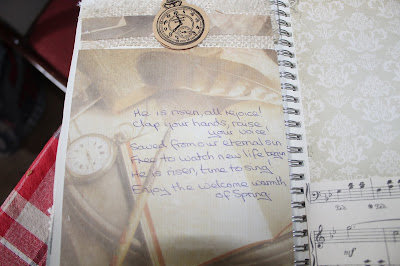 He is risen, all rejoice!
Clap your hands, raise
your voice!
Saved from our eternal sin
Free to watch new life begin
He is risen, time to sing!
Enjoy the welcome warmth
of Spring